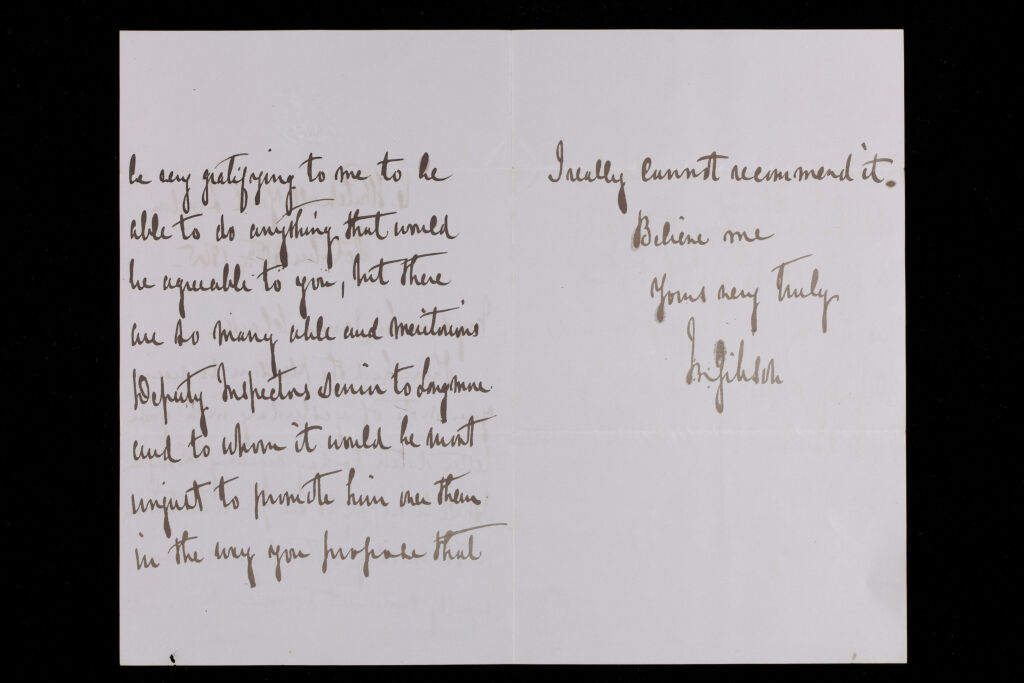 be very gratifying to me to be
able to do anything that would
be agreeable to you, but there
are so many able and meritorious
Deputy Inspectors Senior to Longmore
and to whom it would be most
unjust to promote him over them
in the way you propose that
I really cannot recommend it.
Believe me
Yours very truly
Gibson